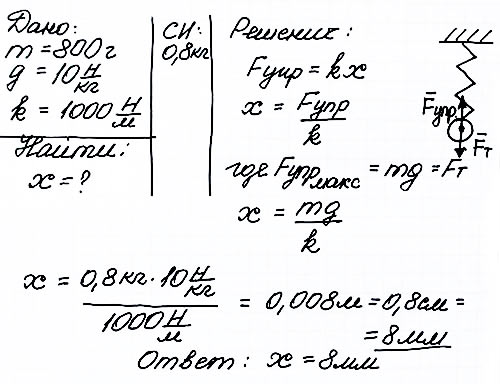 Дано:
m = 800 г
g = 10 Н/кг
k = 1000 Н/м
Найти:
x = ?
СИ:
0,8 кг
Решение:
Fупр = kx
x = Fупр/k
где Fупр макс = mg = Fт
x = mg/k
Fупр
Fт
x = 0,8 кг · 10 Н/кг / 1000 Н/м = 0,008 м = 0,8 см =
= 8 мм
Ответ: x = 8 мм